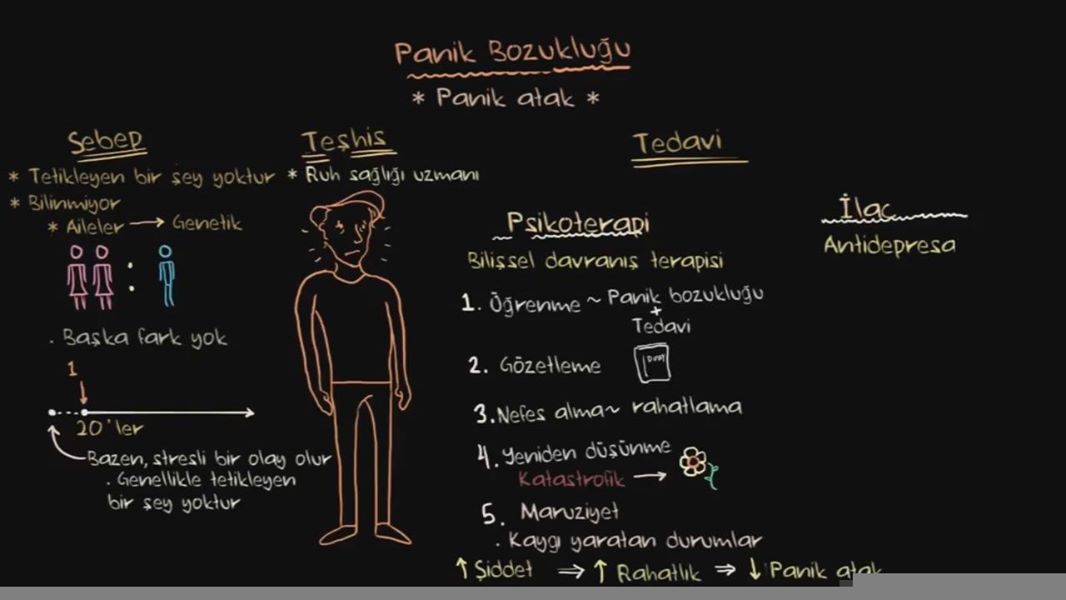 Panik Bozukluğu
* Panik atak *
Sebep
* Tetikleyen bir şey yoktur
* Bilinmiyor
* Aileler → Genetik
:
. Başka fark yok
1
20'ler
Bazen, stresli bir olay olur
. Genellikle tetikleyen
bir şey yoktur
Teşhis
* Ruh sağlığı uzmanı
Tedavi
Psikoterapi
Bilişsel davranış terapisi
1. Öğrenme ~ Panik bozukluğu
+
Tedavi
2. Gözetleme
3. Nefes alma ~ rahatlama
4. Yeniden düşünme
Katastrofik →
5. Maruziyet
. Kaygı yaratan durumlar
↑ Şiddet ⇒ ↑ Rahatlık ⇒ ↓ Panik atak
İlaç
Antidepresa